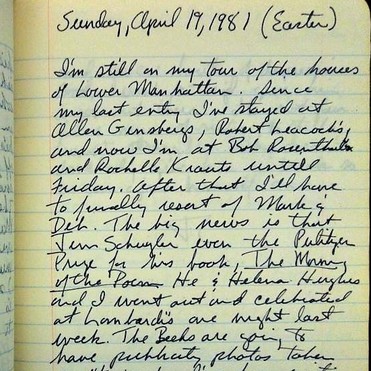 Sunday, April 19, 1981 (Easter)
I'm still on my tour of the houses
of Lower Manhattan. Since
my last entry I've stayed at
Allen Ginsbergs, Robert Leacock's,
and now I'm at Bob Rosenthal
and Rochelle Krauts untill
Friday. After that I'll have
to finally resort of Mark &
Deb. The big news is that
Jim Schuyler won the Pulitzer
Prize for his book, The Morning
of the Poem He & Helena Hughes
and I went out and celebrated
at Lombardi's one night last
week. The Beeks are going to
have publicity photos taken